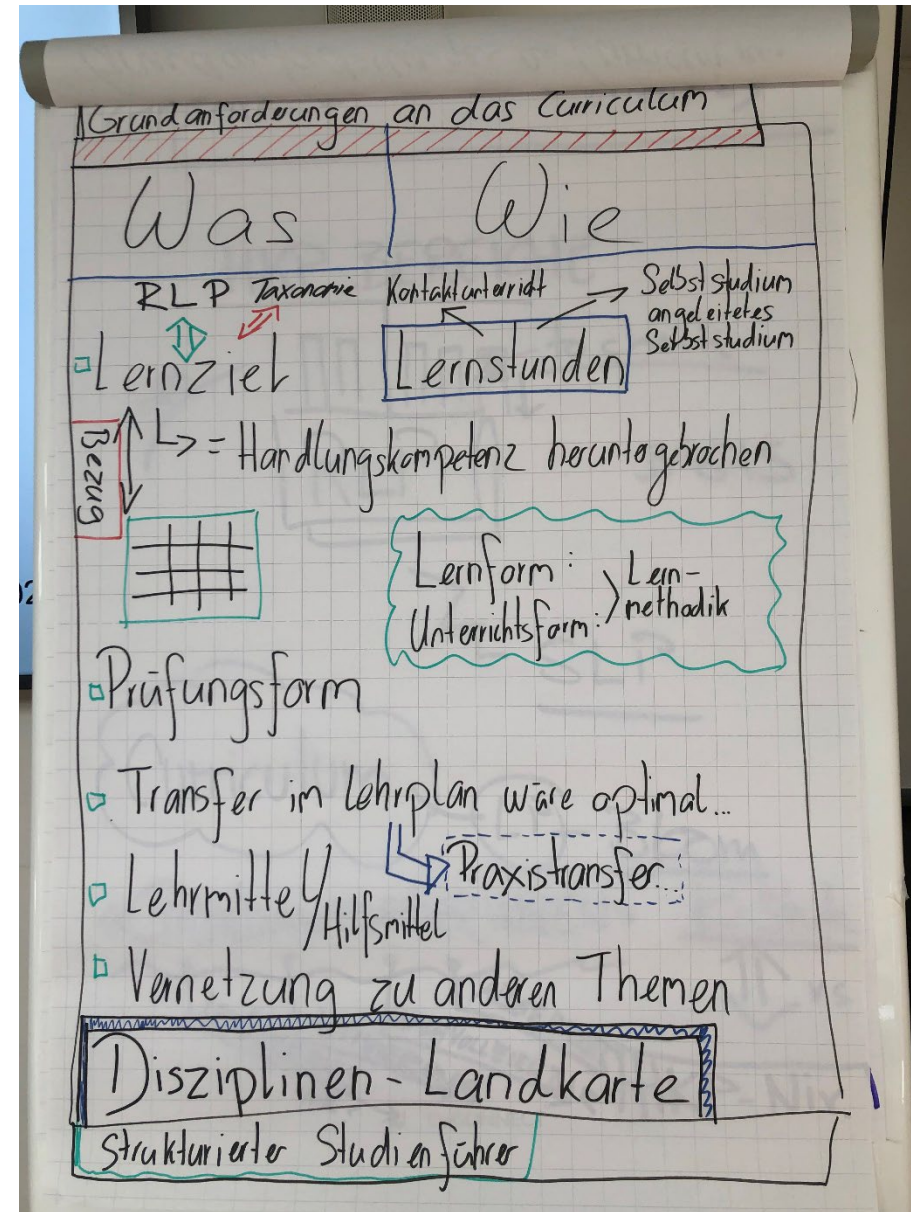 Grundanforderungen an das Curriculum
Was
Wie
RLP Taxonomie
Kontaktunterricht
Selbststudium
angeleitetes
Selbststudium
Lernziel
Lernstunden
Bezug
= Handlungskompetenz heruntergebrochen
Lernform:
Unterrichtsform:
Lern-
methodik
Prüfungsform
Transfer im Lehrplan wäre optimal...
Praxistransfer...
Lehrmittel/Hilfsmittel
Vernetzung zu anderen Themen
Disziplinen-Landkarte
Strukturierter Studienführer